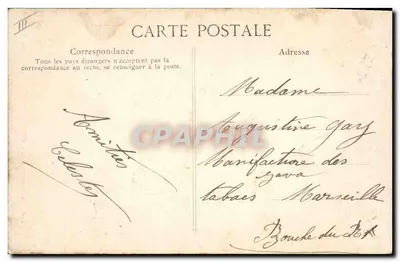 III
CARTE POSTALE
Correspondance
Tous les pays étrangers n'acceptent pas la
correspondance au recto, se renseigner à la poste.
Adresse
Amitiés
Celestin
Madame
Augustine Gay
Manifacture des
tabacs Marseille
Bouche du Rh
CPAPHIL